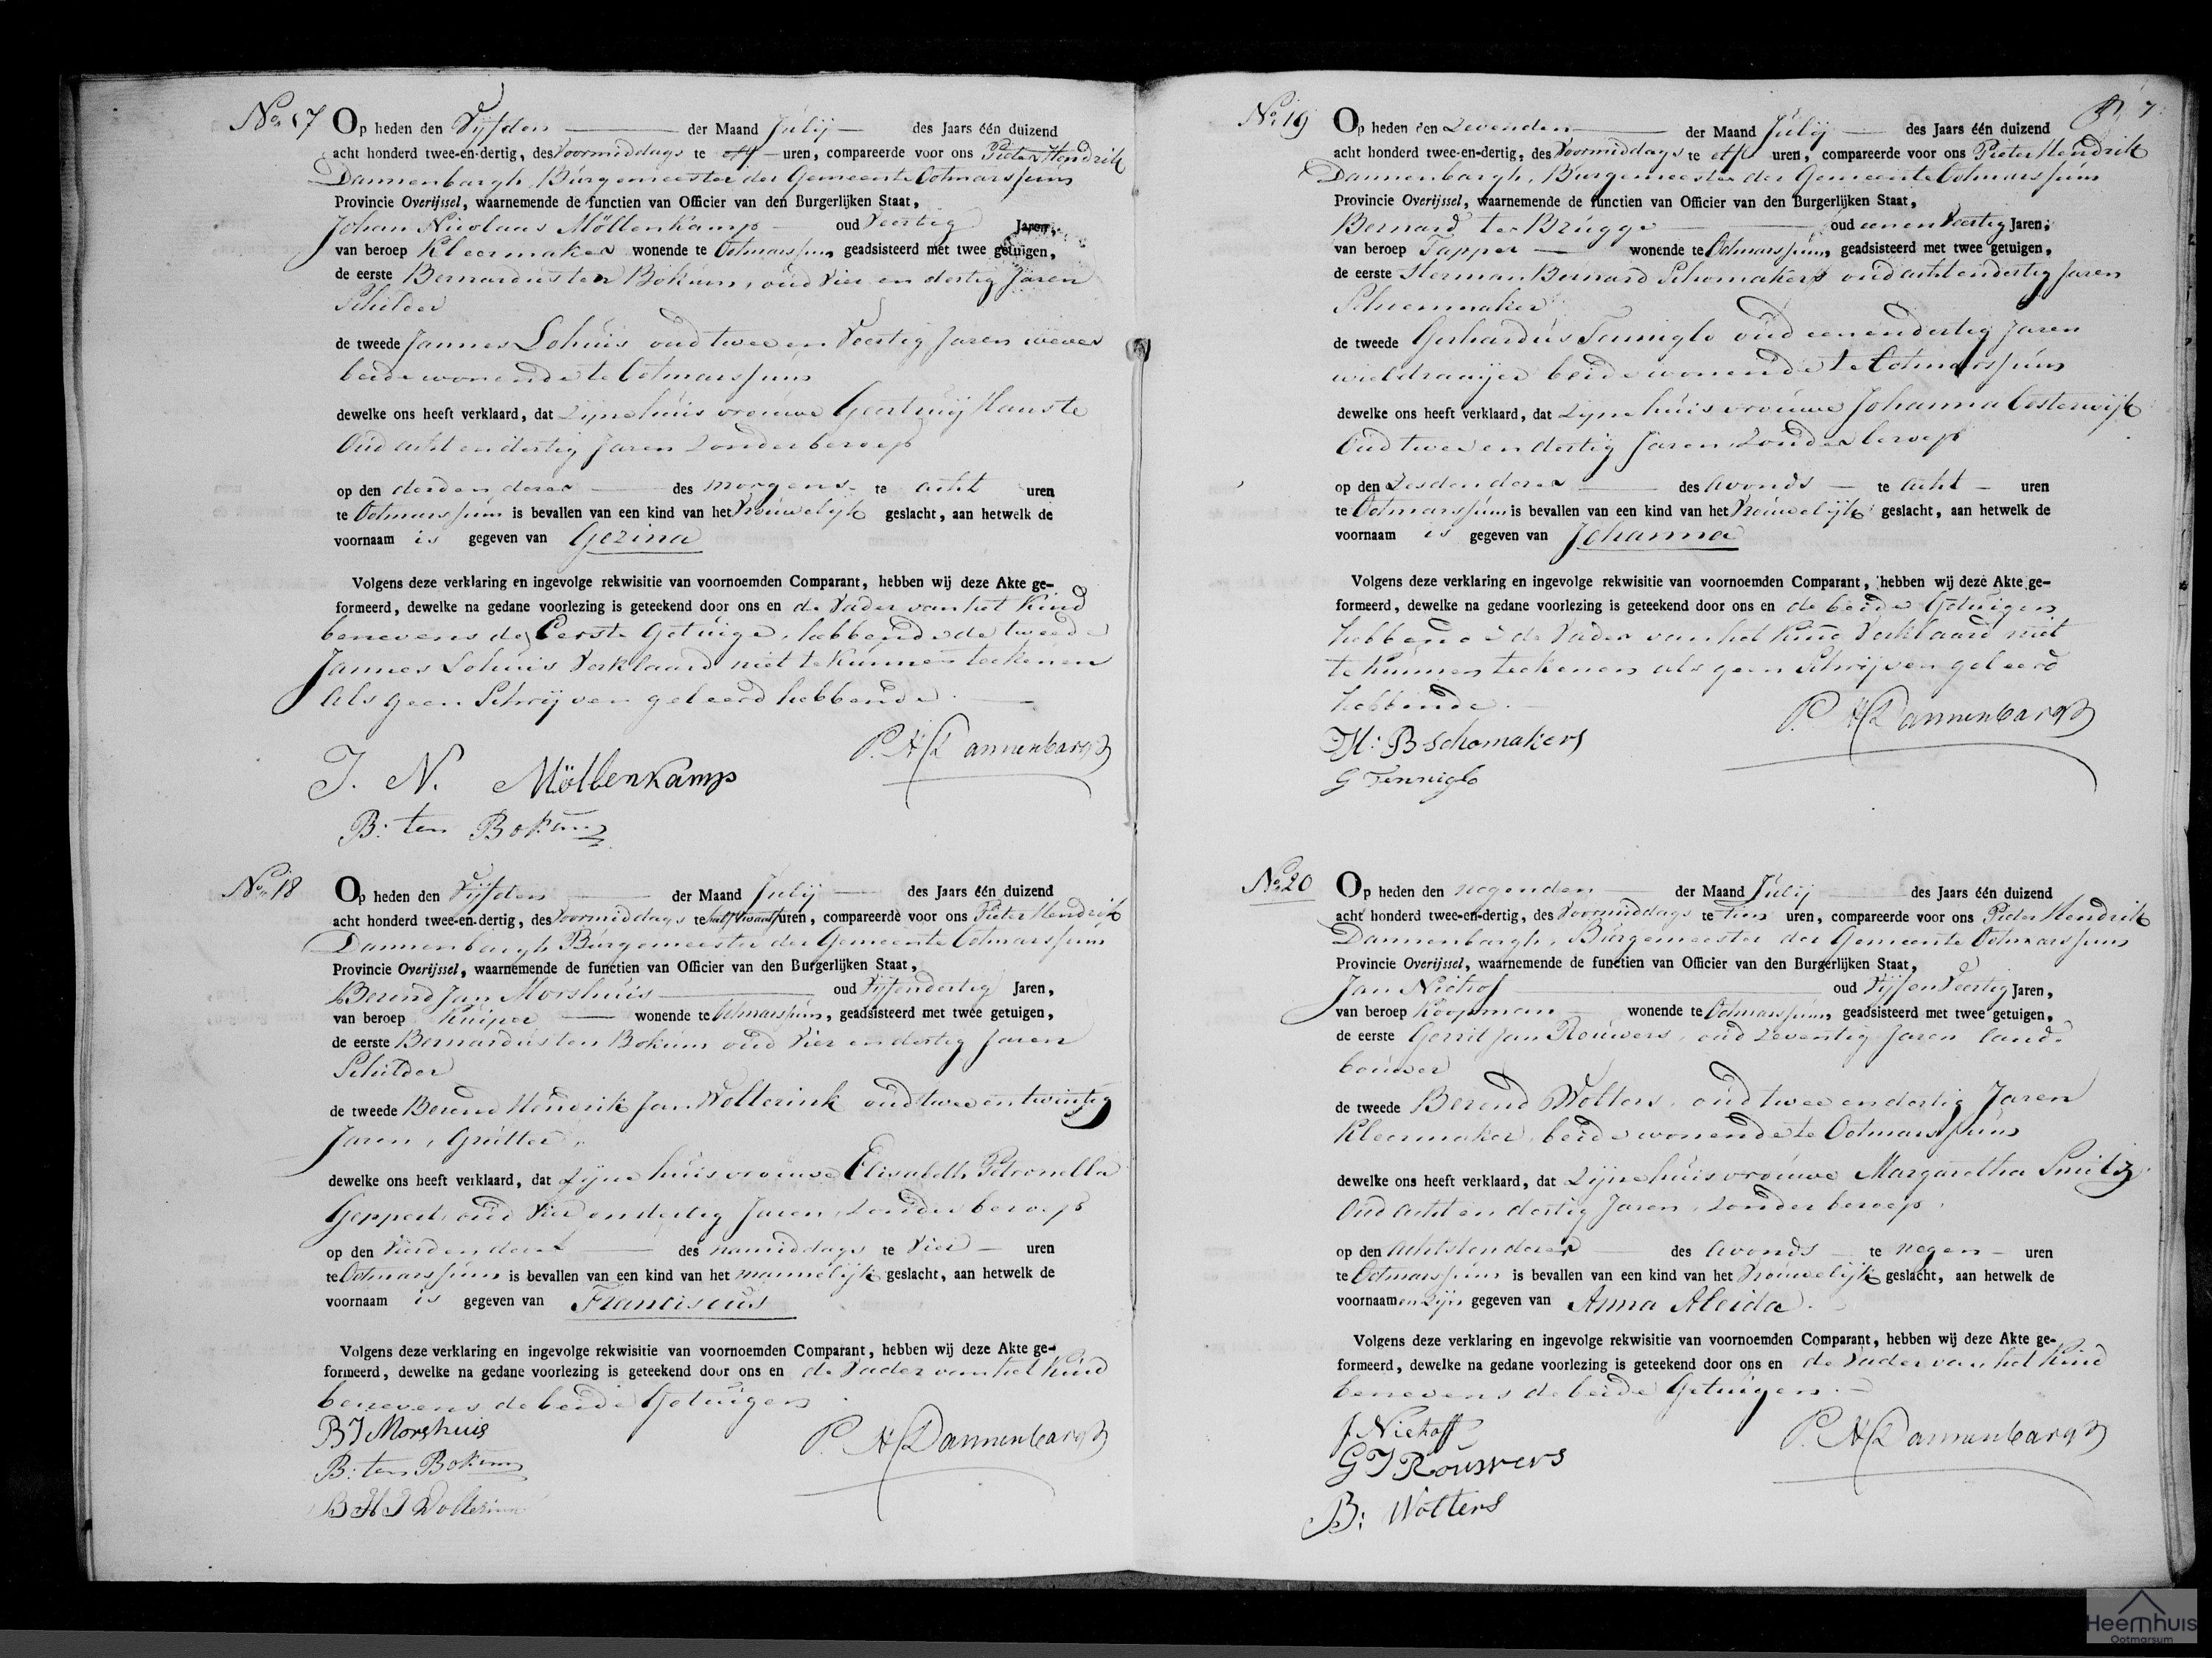 No 17 Op heden den Vijfden der Maand Julij des Jaars één duizend
acht honderd twee-en-dertig, des Voormiddags te elf uren, compareerde voor ons Pieter Hendrik
Dannenbargh, Burgemeester der Gemeente Ootmarssum
Provincie Overijssel, waarnemende de functien van Officier van den Burgerlijken Staat,
Johan Nicolaas Möllenkamp oud Veertig Jaren,
van beroep Kleermaker wonende te Ootmarssum, geadsisteerd met twee getuigen,
de eerste Bernardus ten Bokum, oud Vier en dertig Jaren
Schilder
de tweede Jannes Lohuis oud twee en Veertig Jaren wever
beide wonende te Ootmarssum
dewelke ons heeft verklaard, dat Zijne huisvrouwe Geertruij Hauste
Oud acht en dertig Jaren Zonder beroep
op den derden dezer des morgens te acht uren
te Ootmarssum is bevallen van een kind van het Vrouwelijk geslacht, aan hetwelk de
voornaam is gegeven van Gezina
Volgens deze verklaring en ingevolge rekwisitie van voornoemden Comparant, hebben wij deze Akte ge-
formeerd, dewelke na gedane voorlezing is geteekend door ons en de Vader van het Kind
benevens de Eerste Getuige, hebbende de tweede
Jannes Lohuis Verklaard niet te kunnen teekenen
als geen Schrijven geleerd hebbende.
P. H. Dannenbargh
J. N. Möllenkamp
B: ten Bokum
No 18 Op heden den Vijfden der Maand Julij des Jaars één duizend
acht honderd twee-en-dertig, des Voormiddags te half twaalf uren, compareerde voor ons Pieter Hendrik
Dannenbargh Burgemeester der Gemeente Ootmarssum
Provincie Overijssel, waarnemende de functien van Officier van den Burgerlijken Staat,
Berend Jan Morshuis oud Vijfendertig Jaren,
van beroep Kuiper wonende te Ootmarssum, geadsisteerd met twee getuigen,
de eerste Bernardus ten Bokum oud Vier en dertig Jaren
Schilder
de tweede Berend Hendrik Jan Wolterink oud twee en twintig
Jaren, Grutter,
dewelke ons heeft verklaard, dat Zijne huisvrouwe Elisabeth Petronella
Geppert, oud Vier en dertig Jaren, Zonder beroep
op den Vierden dezer des namiddags te Vier uren
te Ootmarssum is bevallen van een kind van het mannelijk geslacht, aan hetwelk de
voornaam is gegeven van Franciscus
Volgens deze verklaring en ingevolge rekwisitie van voornoemden Comparant, hebben wij deze Akte ge-
formeerd, dewelke na gedane voorlezing is geteekend door ons en de Vader van het Kind
benevens de beide Getuigen.
BJ Morshuis
P. H. Dannenbargh
B: ten Bokum
B H J Wolterink
7
No 19 Op heden den Zevenden der Maand Julij des Jaars één duizend
acht honderd twee-en-dertig, des Voormiddags te elf uren, compareerde voor ons Pieter Hendrik
Dannenbargh, Burgemeester der Gemeente Ootmarssum
Provincie Overijssel, waarnemende de functien van Officier van den Burgerlijken Staat,
Bernard ter Brugge oud eenenVeertig Jaren,
van beroep Tapper wonende te Ootmarssum, geadsisteerd met twee getuigen,
de eerste Herman Bernard Schomakers oud acht en dertig Jaren
Schoenmaker
de tweede Gerhardus Tenniglo oud eenendertig Jaren
wieldraaijer beide wonende te Ootmarssum
dewelke ons heeft verklaard, dat Zijne huisvrouwe Johanna Oosterwijk
Oud twee en dertig Jaren, Zonder beroep
op den Zesden dezer des Avonds te Acht uren
te Ootmarssum is bevallen van een kind van het Vrouwelijk geslacht, aan hetwelk de
voornaam is gegeven van Johanna
Volgens deze verklaring en ingevolge rekwisitie van voornoemden Comparant, hebben wij deze Akte ge-
formeerd, dewelke na gedane voorlezing is geteekend door ons en de beide Getuigen
hebbende de Vader van het Kind Verklaard niet
te kunnen teekenen als geen Schrijven geleerd
hebbende.
P. H. Dannenbargh
H: B Schomakers
G Tenniglo
No 20 Op heden den negenden der Maand Julij des Jaars één duizend
acht honderd twee-en-dertig, des Voormiddags te Tien uren, compareerde voor ons Pieter Hendrik
Dannenbargh, Burgemeester der Gemeente Ootmarssum
Provincie Overijssel, waarnemende de functien van Officier van den Burgerlijken Staat,
Jan Niehof oud VijfenVeertig Jaren,
van beroep Koopman wonende te Ootmarssum, geadsisteerd met twee getuigen,
de eerste Gerrit Jan Rouwers, oud Zeventig Jaren land-
bouwer
de tweede Berend Wolters, oud twee en dertig Jaren
Kleermaker, beide wonende te Ootmarssum
dewelke ons heeft verklaard, dat Zijne huisvrouwe Margaretha Smitz
Oud Acht en dertig Jaren, Zonder beroep,
op den Achtsten dezer des Avonds te negen uren
te Ootmarssum is bevallen van een kind van het Vrouwelijk geslacht, aan hetwelk de
voornaamen zijn gegeven van Anna Aleida.
Volgens deze verklaring en ingevolge rekwisitie van voornoemden Comparant, hebben wij deze Akte ge-
formeerd, dewelke na gedane voorlezing is geteekend door ons en de Vader van het Kind
benevens de beide Getuigen.
J Niehoff
P. H. Dannenbargh
G J Rouwers
B: Wolters
Heemhuis
Ootmarsum